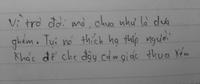 Vì trở đời mà, chưa như là dưa
ghém. Tụi nó thích hạ thấp người
khác để che đậy cảm giác thua kém